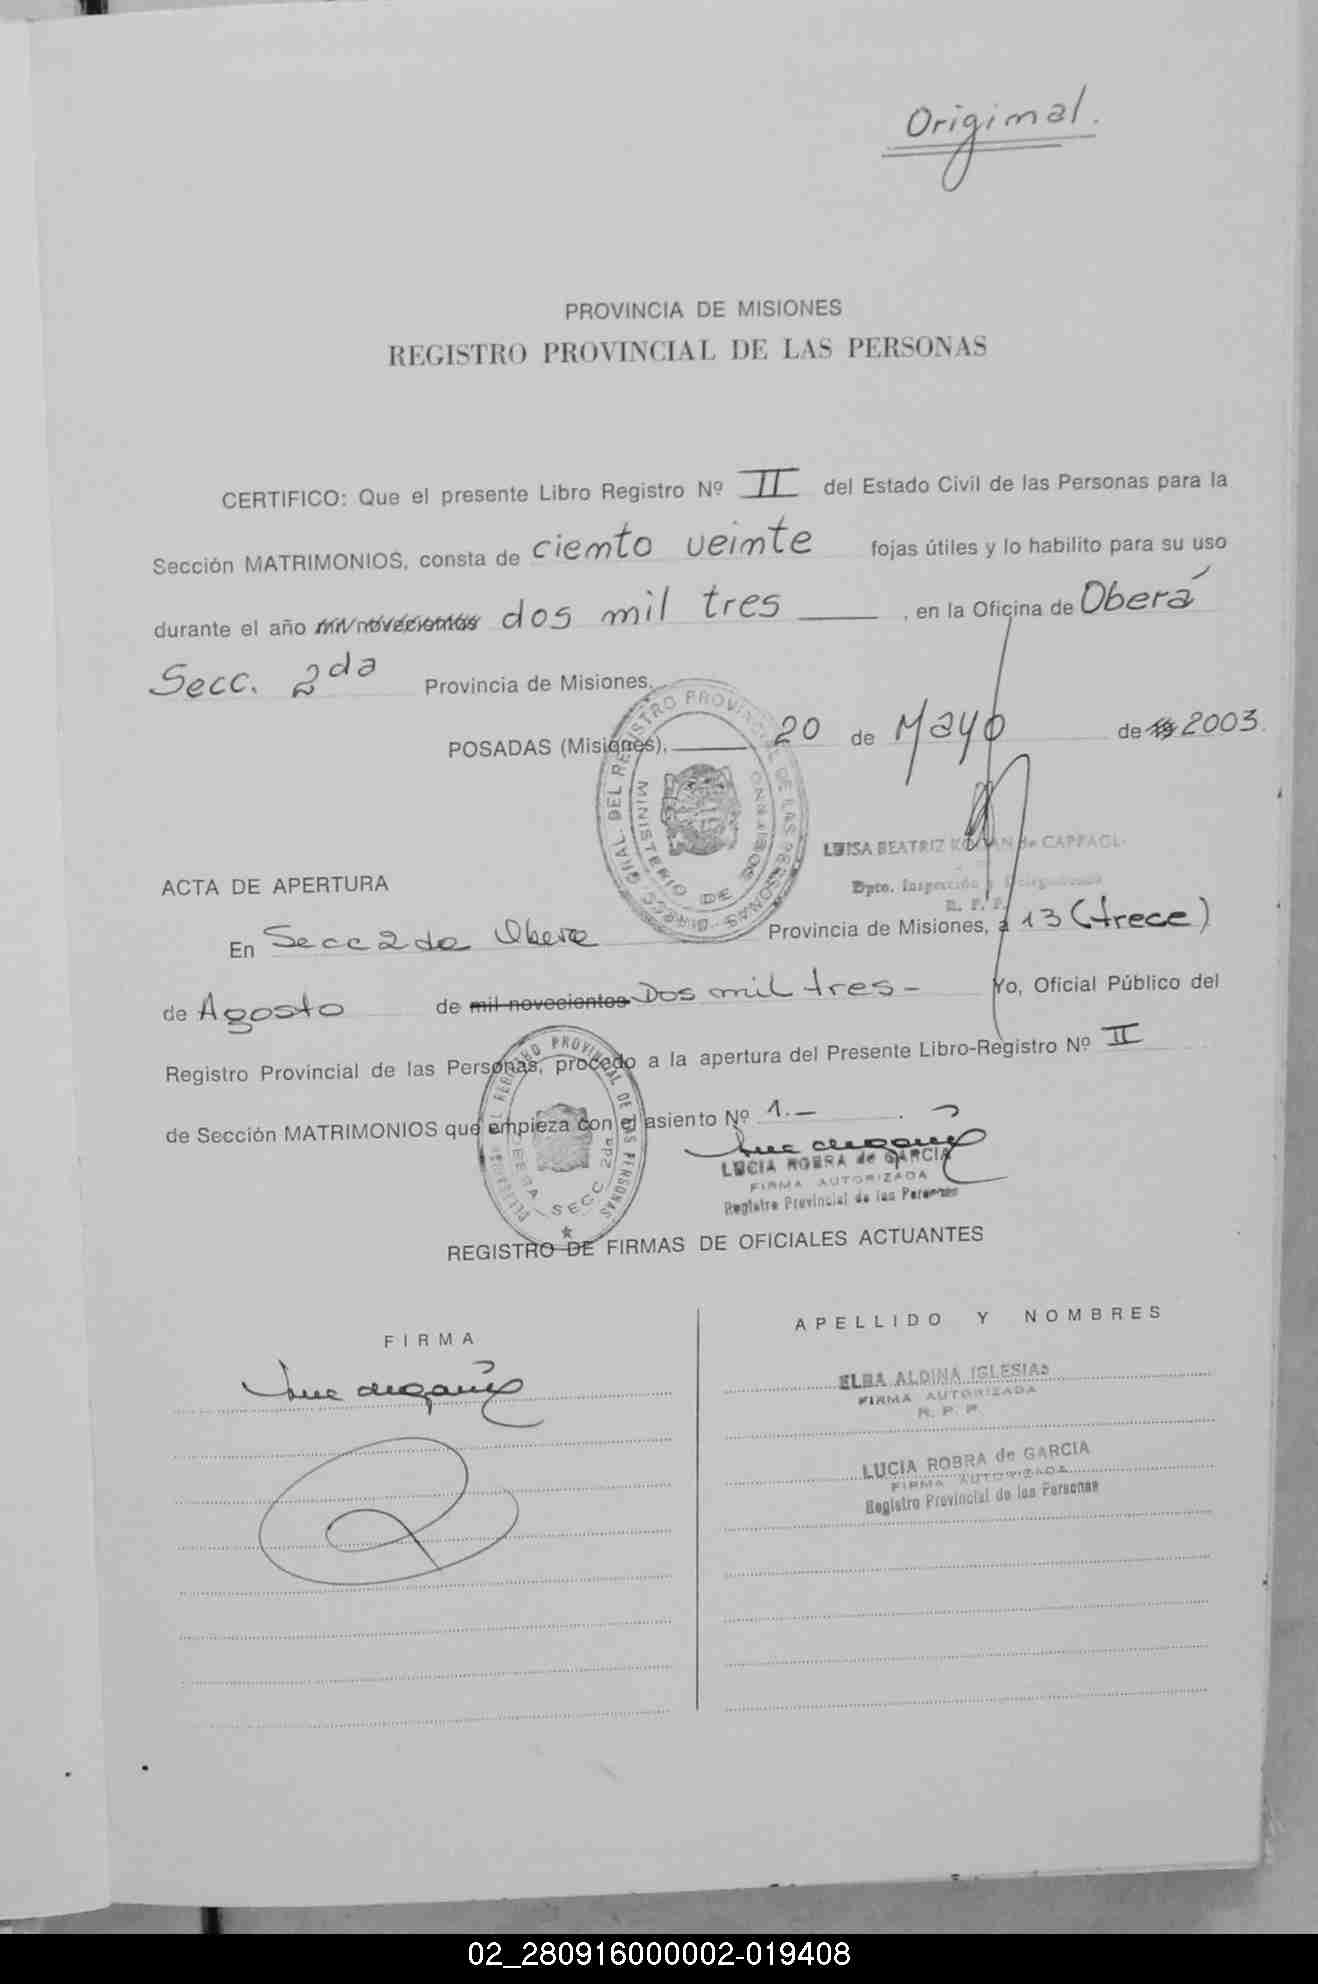 Original.
PROVINCIA DE MISIONES
REGISTRO PROVINCIAL DE LAS PERSONAS
CERTIFICO: Que el presente Libro Registro Nº II del Estado Civil de las Personas para la
Sección MATRIMONIOS, consta de ciento veinte fojas útiles y lo habilito para su uso
durante el año mil novecientos dos mil tres , en la Oficina de Oberá
Secc. 2da Provincia de Misiones.
POSADAS (Misiones), 20 de Mayo de 19 2003.
DIRECC. GRAL. DEL REGISTRO PROVINCIAL DE LAS PERSONAS
MINISTERIO DE GOBIERNO
LUISA BEATRIZ de
Dpto. Inspección y
R. P. P.
ACTA DE APERTURA
En Secc 2da Obera Provincia de Misiones, a 13 (trece)
de Agosto de mil novecientos Dos mil tres - Yo, Oficial Público del
Registro Provincial de las Personas, procedo a la apertura del Presente Libro-Registro Nº II
de Sección MATRIMONIOS que empieza con el asiento Nº 1.-
REGISTRO PROVINCIAL DE LAS PERSONAS
OBERA SECC 2da
LUCIA ROBRA de GARCIA
FIRMA AUTORIZADA
Registro Provincial de las Personas
REGISTRO DE FIRMAS DE OFICIALES ACTUANTES
FIRMA
APELLIDO Y NOMBRES
ELBA ALDINA IGLESIAS
FIRMA AUTORIZADA
R. P. P.
LUCIA ROBRA de GARCIA
FIRMA AUTORIZADA
Registro Provincial de las Personas
02_280916000002-019408